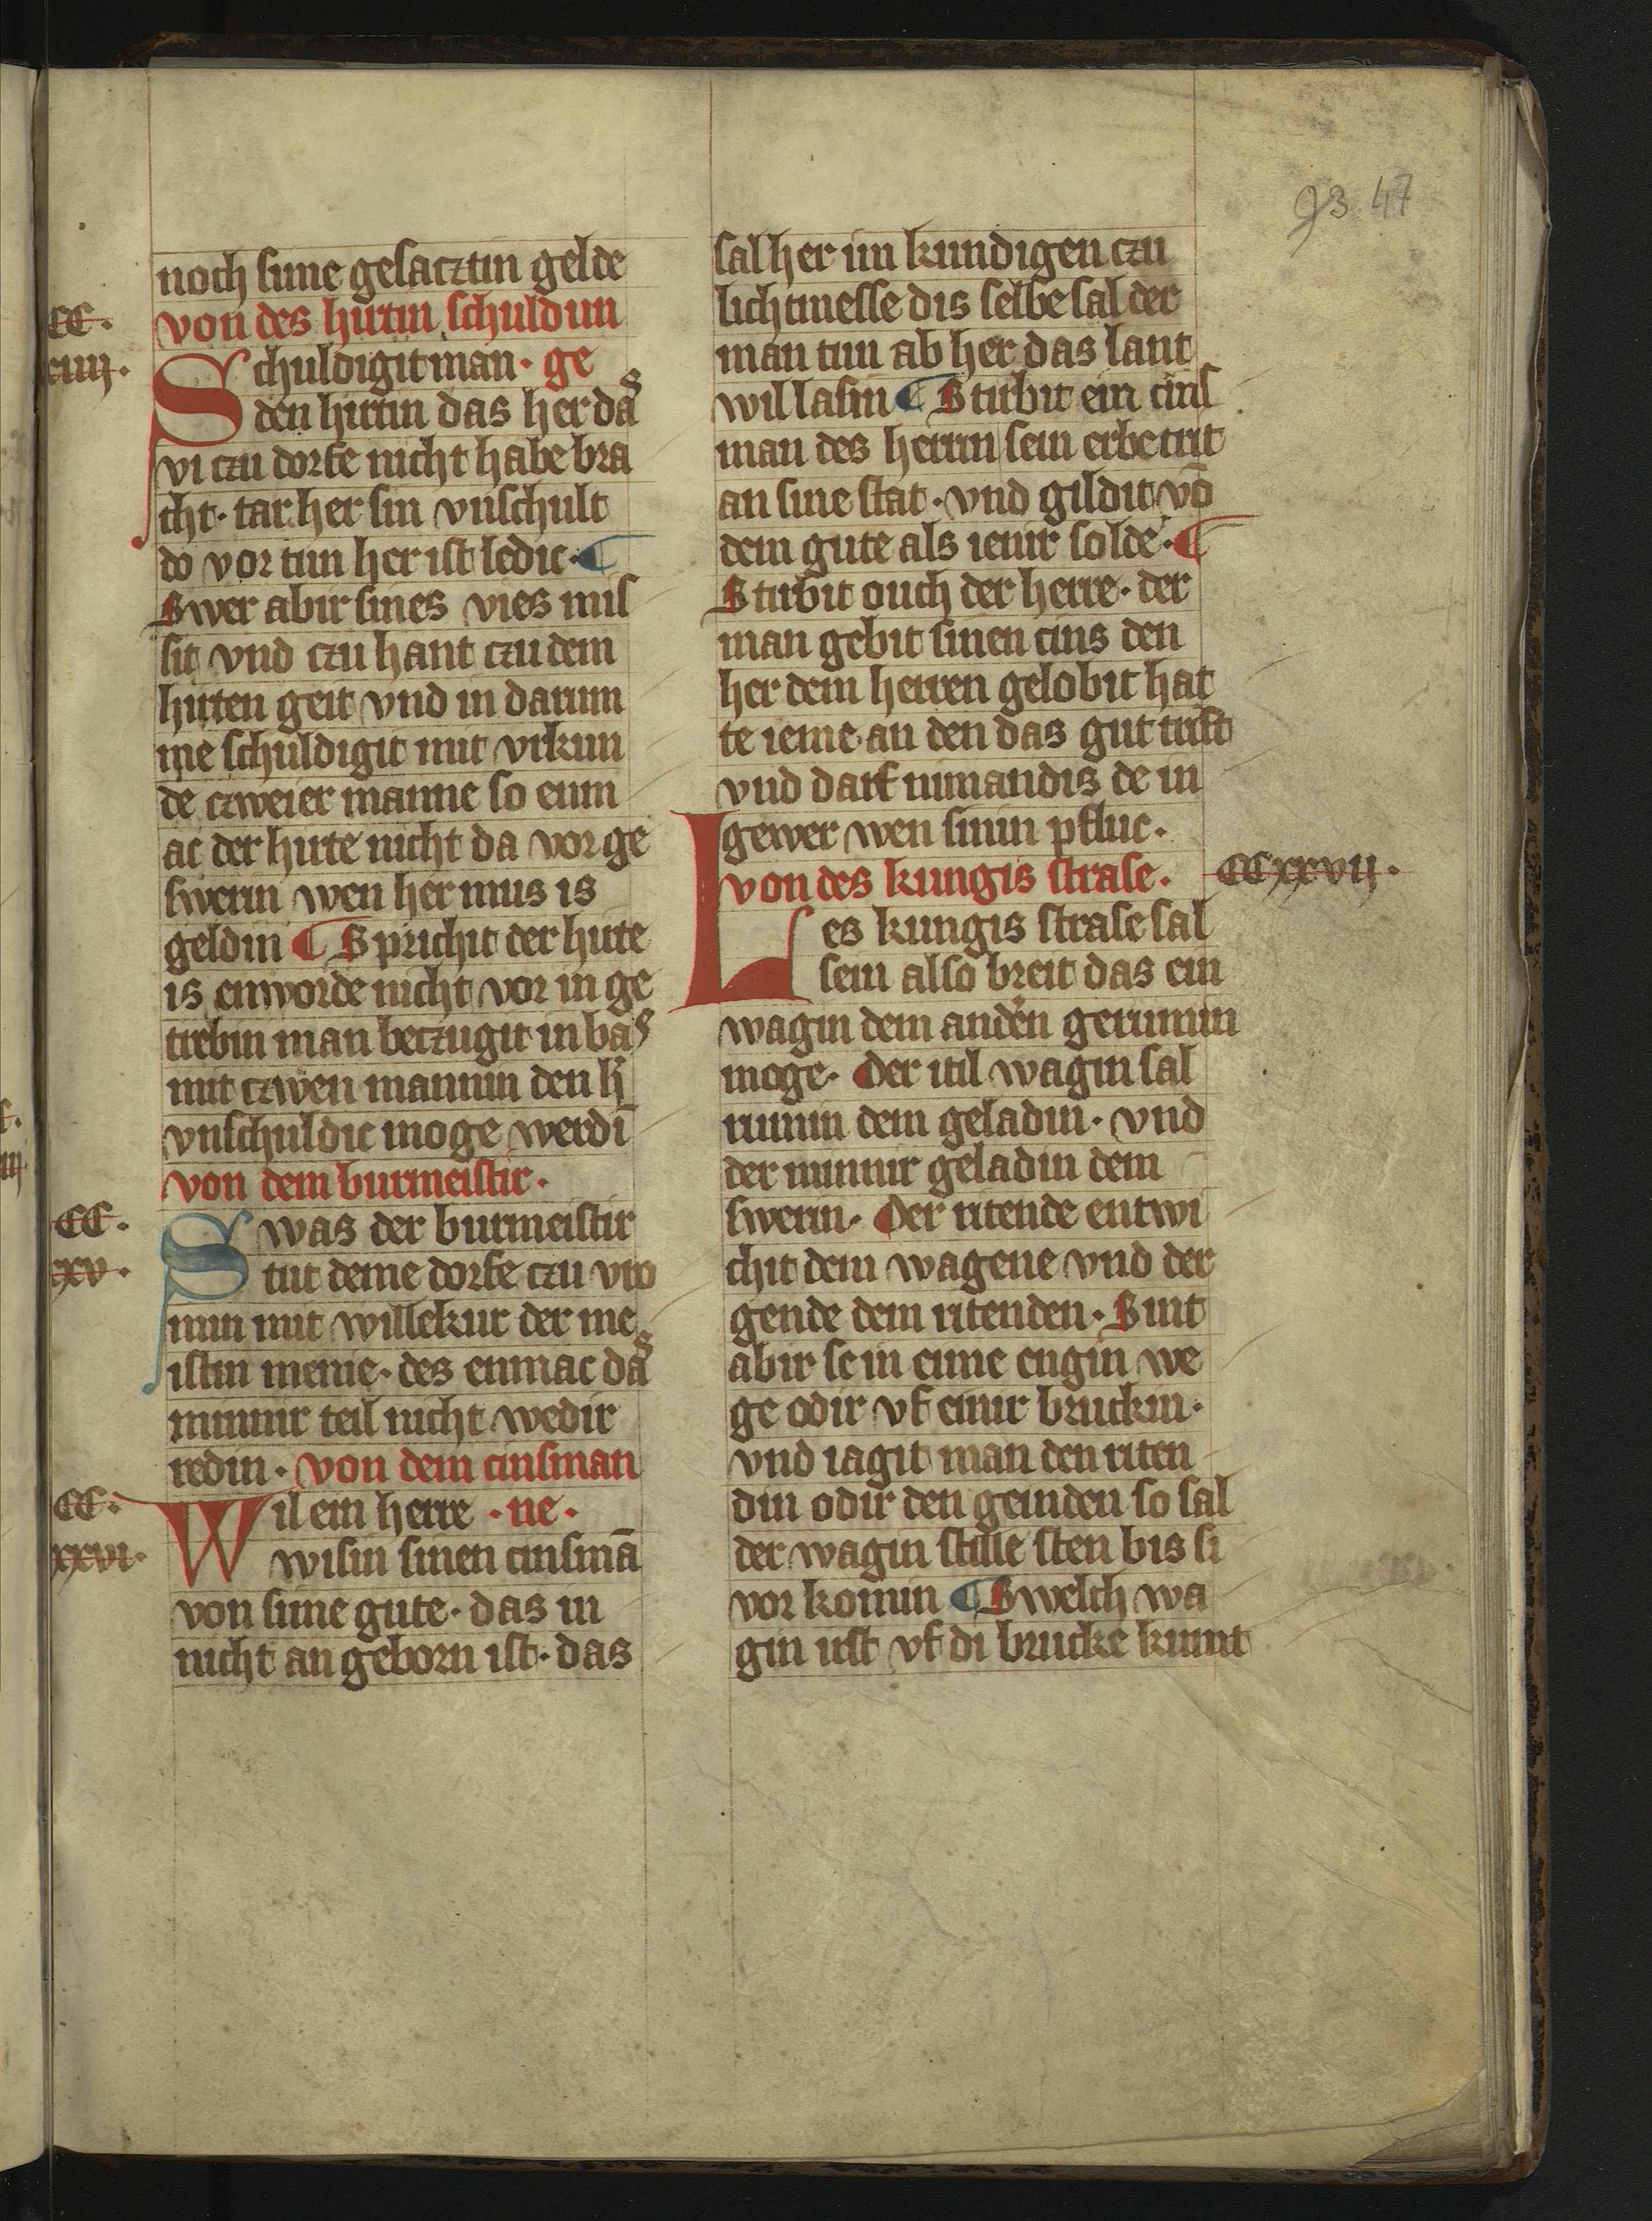 93 47
noch sime gesacztin gelde
CC.
xiiij.
von des hirtin schuldun
Schuldigit man · ge
den hirtin das her das
vi czu dorfe nicht habe bra
cht · tar her sin vnschult
do vor tun her ist ledic · ¶
Swer abir sines vies mis
sit vnd czu hant czu dem
hirten geit vnd in darum
me schuldigit mit vrkun
de czweier manne so enm
ac der hirte nicht da vor ge
swerin wen her mus is
geldin ¶ Sprichit der hirte
is enworde nicht vor in ge
trebin man beczugit in bas
mit czwen mannin den h̄
vnschuldic moge werdī
von dem burmeistir ·
CC.
xxv.
Swas der burmeistir
tut deme dorfe czu vro
min mit willekur der me
istin menie · des enmac das
minnir teil nicht wedir
redin · von dem cinsman
CC.
xxvi.
Wil ein herre · ne ·
wisin sinen cinsmā
von sime gute · das in
nicht an geborn ist · das
sal her im kundigen czu
lichtmesse dis selbe sal der
man tun ab her das lant
wil lasin ¶ Stirbit ein cins
man des herrin sein erbe trit
an sine stat · vnd gildit vō
dem gute als ienir solde · ¶
Stirbit ouch der herre · der
man gebit sinen cins den
her dem herren gelobit hat
te ieme an den das gut irist
vnd darf nimandis de in
gewer wen sinin pfluc ·
von des kungis strase ·
CCxxvij.
Les kungis strase sal
sein also breit das ein
wagin dem andern gerumin
moge · Der itil wagin sal
rumin dem geladin · vnd
der minnir geladin dem
swerin · Der ritende entwi
chit dem wagene vnd der
gende dem ritenden · Sint
abir se in eime engin we
ge odir vf einir bruckin ·
vnd iagit man den riten
din odir den geinden so sal
der wagin stille sten bis si
vor komin ¶ Swelch wa
gin irst vf di brucke kumt